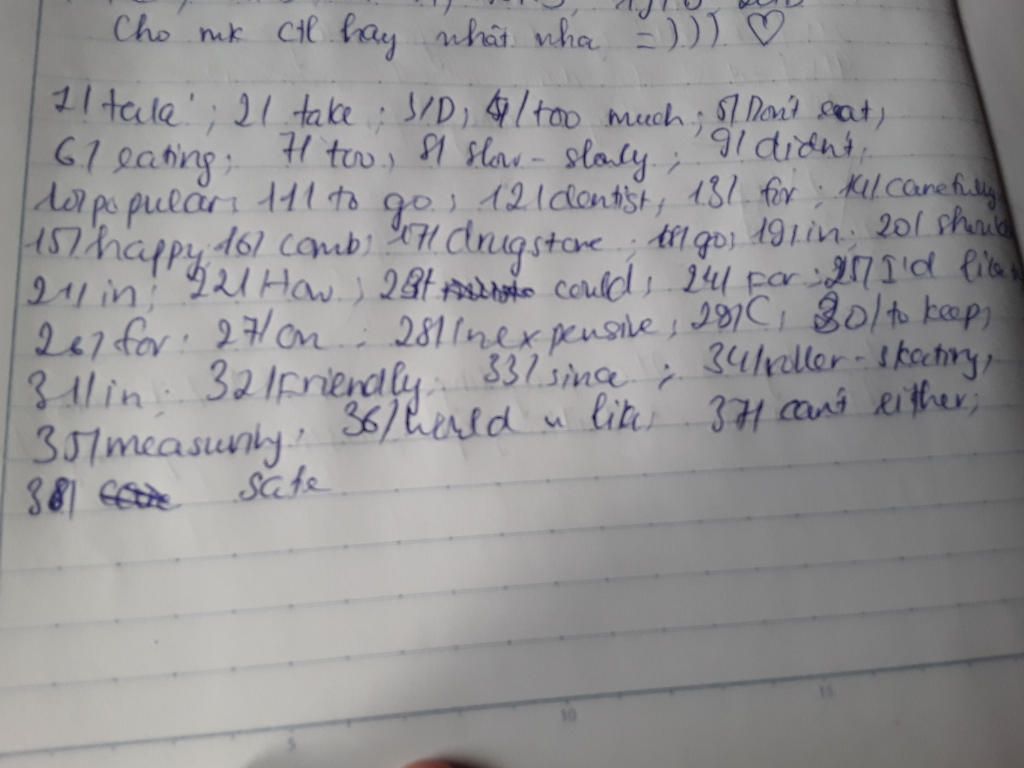 Cho mk ctl hay nhất nha =))) ♡
1/ take; 2/ take; 3/D; 4/ too much; 5/ Don't eat;
6/ eating; 7/ too; 8/ slow - slowly; 9/ didn't;
10/ popular; 11/ to go; 12/ dentist; 13/ for; 14/ carefully
15/ happy; 16/ comb; 17/ drugstore; 18/ go; 19/ in; 20/ should
21/ in; 22/ How; 23/ could; 24/ Far; 25/ I'd like
26/ for; 27/ on; 28/ Inexpensive; 29/ C; 30/ to keep;
31/ in; 32/ Friendly; 33/ since; 34/ roller-skating;
35/ measuring; 36/ would u like; 37/ can't either;
38/ safe